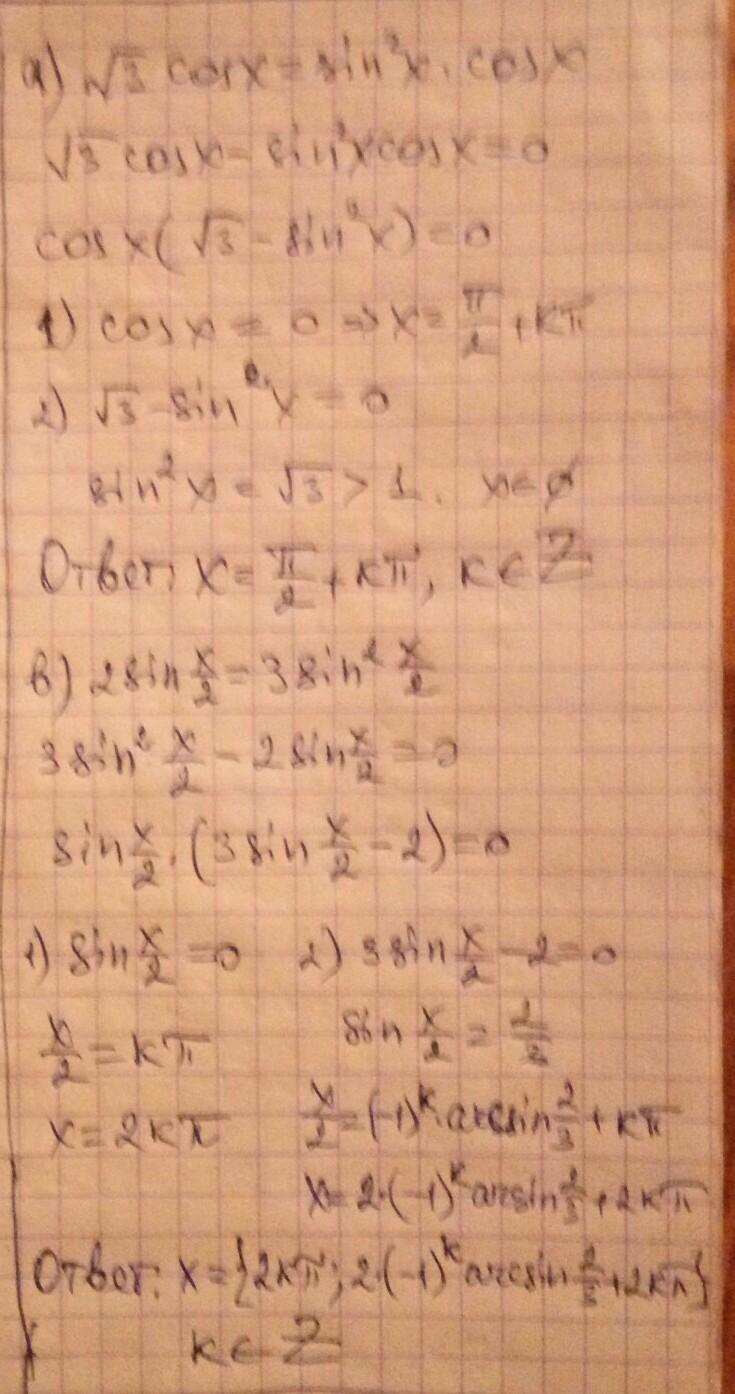 а) √3 cosx = sin²x · cosx
√3 cosx - sin²x cosx = 0
cosx(√3 - sin²x) = 0
1) cosx = 0 => x = π/2 + kπ
2) √3 - sin²x = 0
sin²x = √3 > 1. x = ∅
Ответ: x = π/2 + kπ, k ∈ Z
в) 2sin x/2 = 3sin² x/2
3sin² x/2 - 2sin x/2 = 0
sin x/2 · (3sin x/2 - 2) = 0
1) sin x/2 = 0 2) 3sin x/2 - 2 = 0
x/2 = kπ sin x/2 = 2/3
x = 2kπ x/2 = (-1)^k arcsin 2/3 + kπ
x = 2·(-1)^k arcsin 2/3 + 2kπ
Ответ: x = {2kπ; 2·(-1)^k arcsin 2/3 + 2kπ}
k ∈ Z